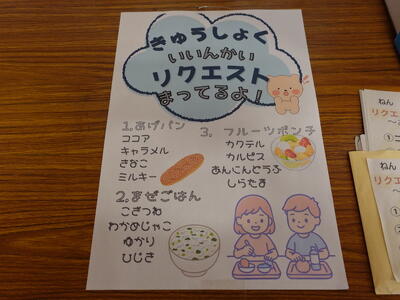 きゅうしょく
いいんかい
リクエスト
まってるよ!
1.あげパン
ココア
キャラメル
きなこ
ミルキー
2.まぜごはん
こぎつね
わかめじゃこ
ゆかり
ひじき
3. フルーツポンチ
カクテル
カルピス
あんにんどうふ
しらたま
ねん
リクエ
ねん
リクエ